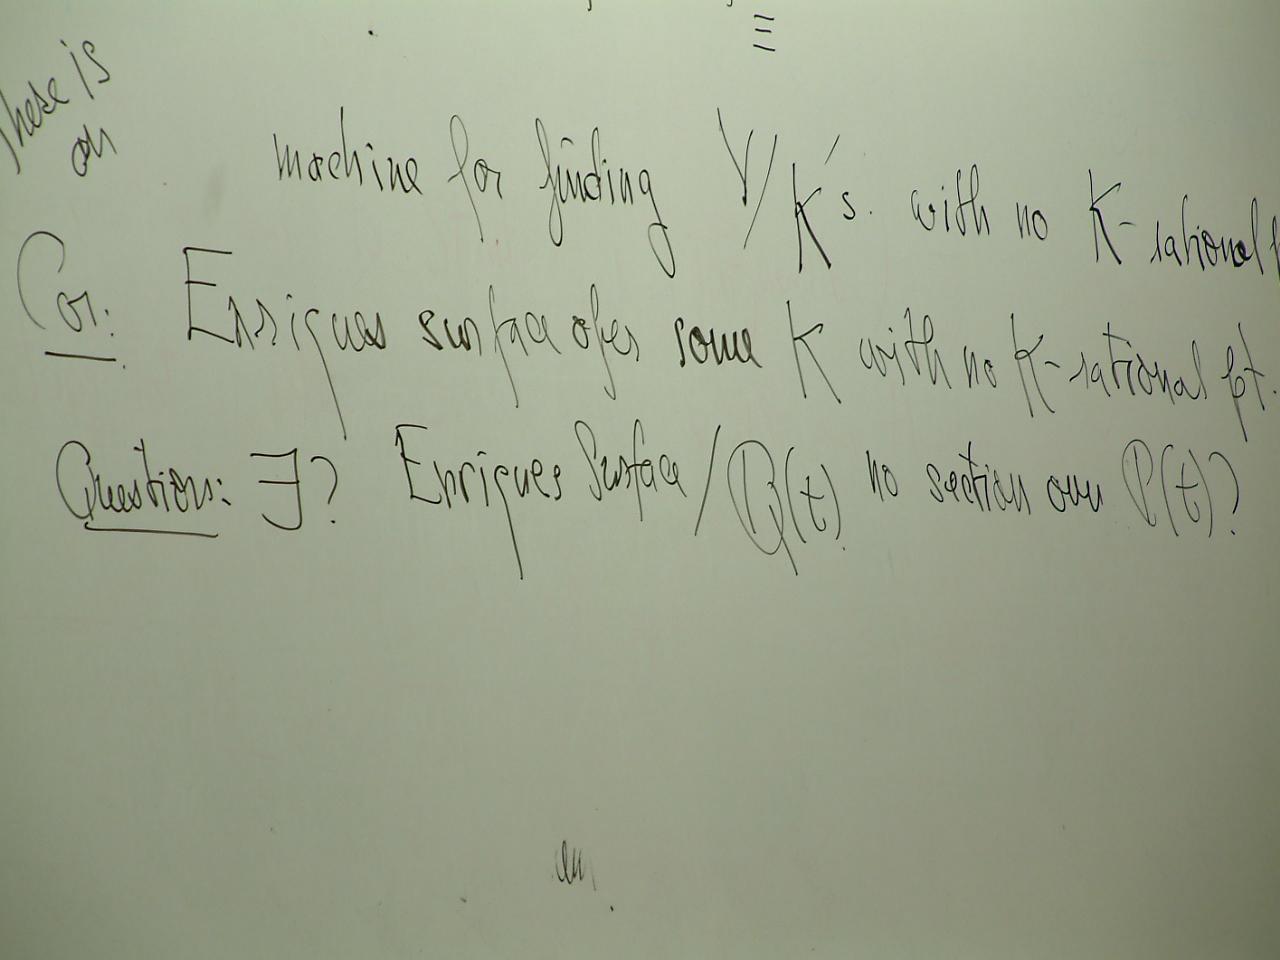 ≡
There is
an
machine for finding V/K's. with no K-rational
Cor: Enriques surface over some K with no K-rational pt.
Question: ∃? Enriques Surface / Q(t) no section over (t)?